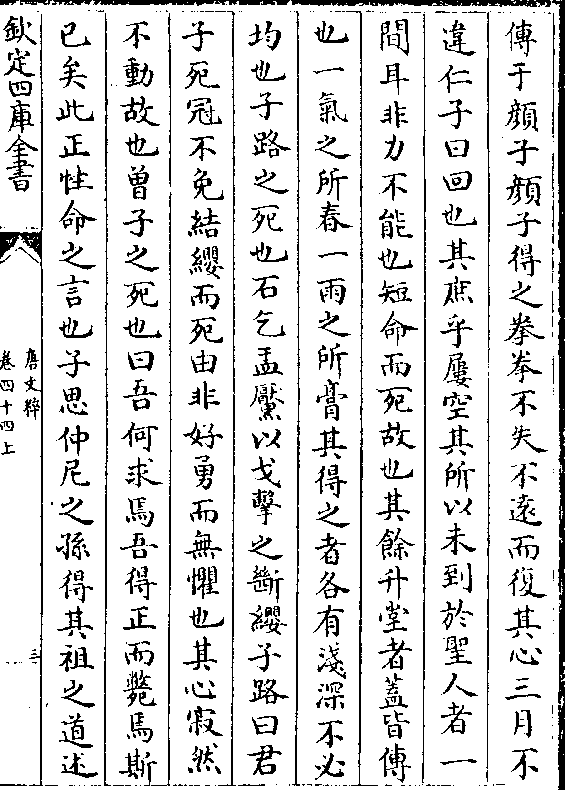 傳于顔子顔子得之拳拳不失不逺而復其心三月不
違仁子曰回也其庶乎屢空其所以未到於聖人者一
間耳非力不能也短命而死故也其餘升堂者蓋皆傳
也一氣之所春一雨之所膏其得之者各有淺深不必
均也子路之死也石乞盂黶以戈擊之斷纓子路曰君
子死冠不免結纓而死由非好勇而無懼也其心寂然
不動故也曽子之死也曰吾何求焉吾得正而斃焉斯
已矣此正性命之言也子思仲尼之孫得其祖之道述
欽定四庫全書
唐文粹
卷四十四上
三